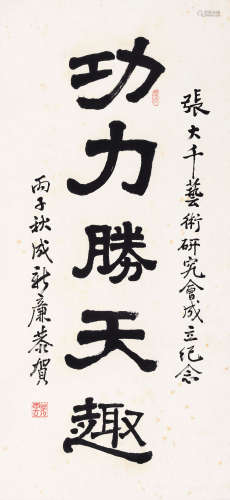 張大千藝術研究會成立紀念
功力勝天趣
丙子秋成新廉恭賀